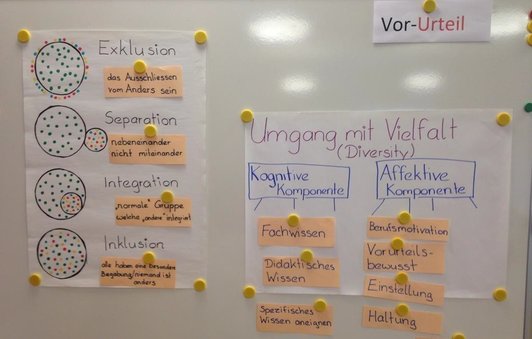 Vor-Urteil
Exklusion
das Ausschliessen
vom Anders sein
Separation
nebeneinander
nicht miteinander
Integration
„normale" Gruppe
welche „andere" integriert
Inklusion
alle haben eine besondere
Begabung/niemand ist
anders
Umgang mit Vielfalt
(Diversity)
Kognitive
Komponente
Fachwissen
Didaktisches
Wissen
Spezifisches
Wissen aneignen
Affektive
Komponente
Berufsmotivation
Vorurteils-
bewusst
Einstellung
Haltung